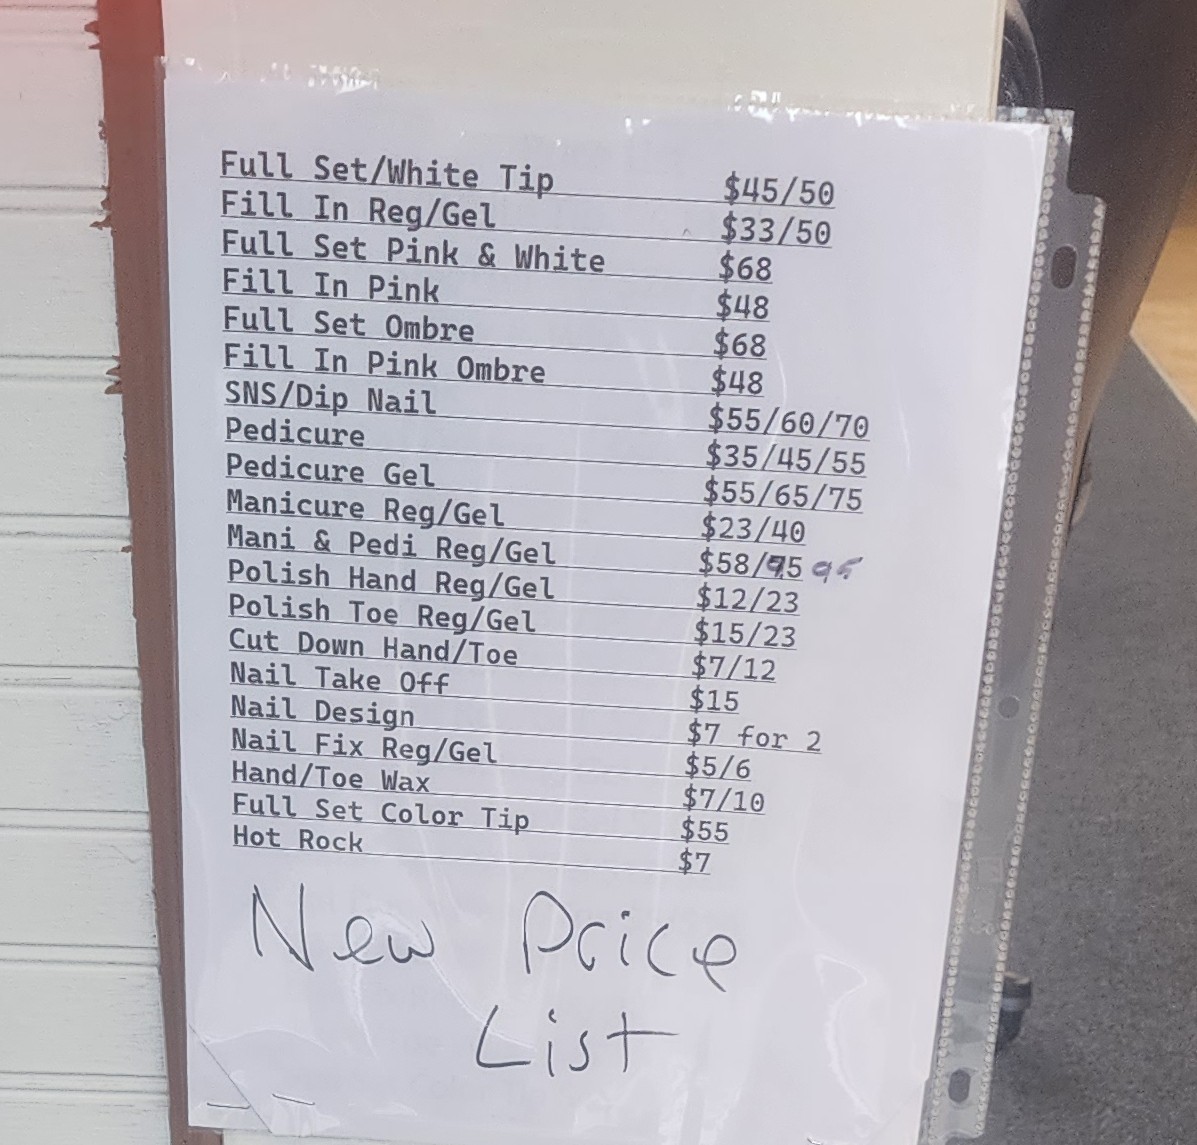 Full Set/White Tip $45/50
Fill In Reg/Gel $33/50
Full Set Pink & White $68
Fill In Pink $48
Full Set Ombre $68
Fill In Pink Ombre $48
SNS/Dip Nail $55/60/70
Pedicure $35/45/55
Pedicure Gel $55/65/75
Manicure Reg/Gel $23/40
Mani & Pedi Reg/Gel $58/95 95
Polish Hand Reg/Gel $12/23
Polish Toe Reg/Gel $15/23
Cut Down Hand/Toe $7/12
Nail Take Off $15
Nail Design $7 for 2
Nail Fix Reg/Gel $5/6
Hand/Toe Wax $7/10
Full Set Color Tip $55
Hot Rock $7
New Price
List